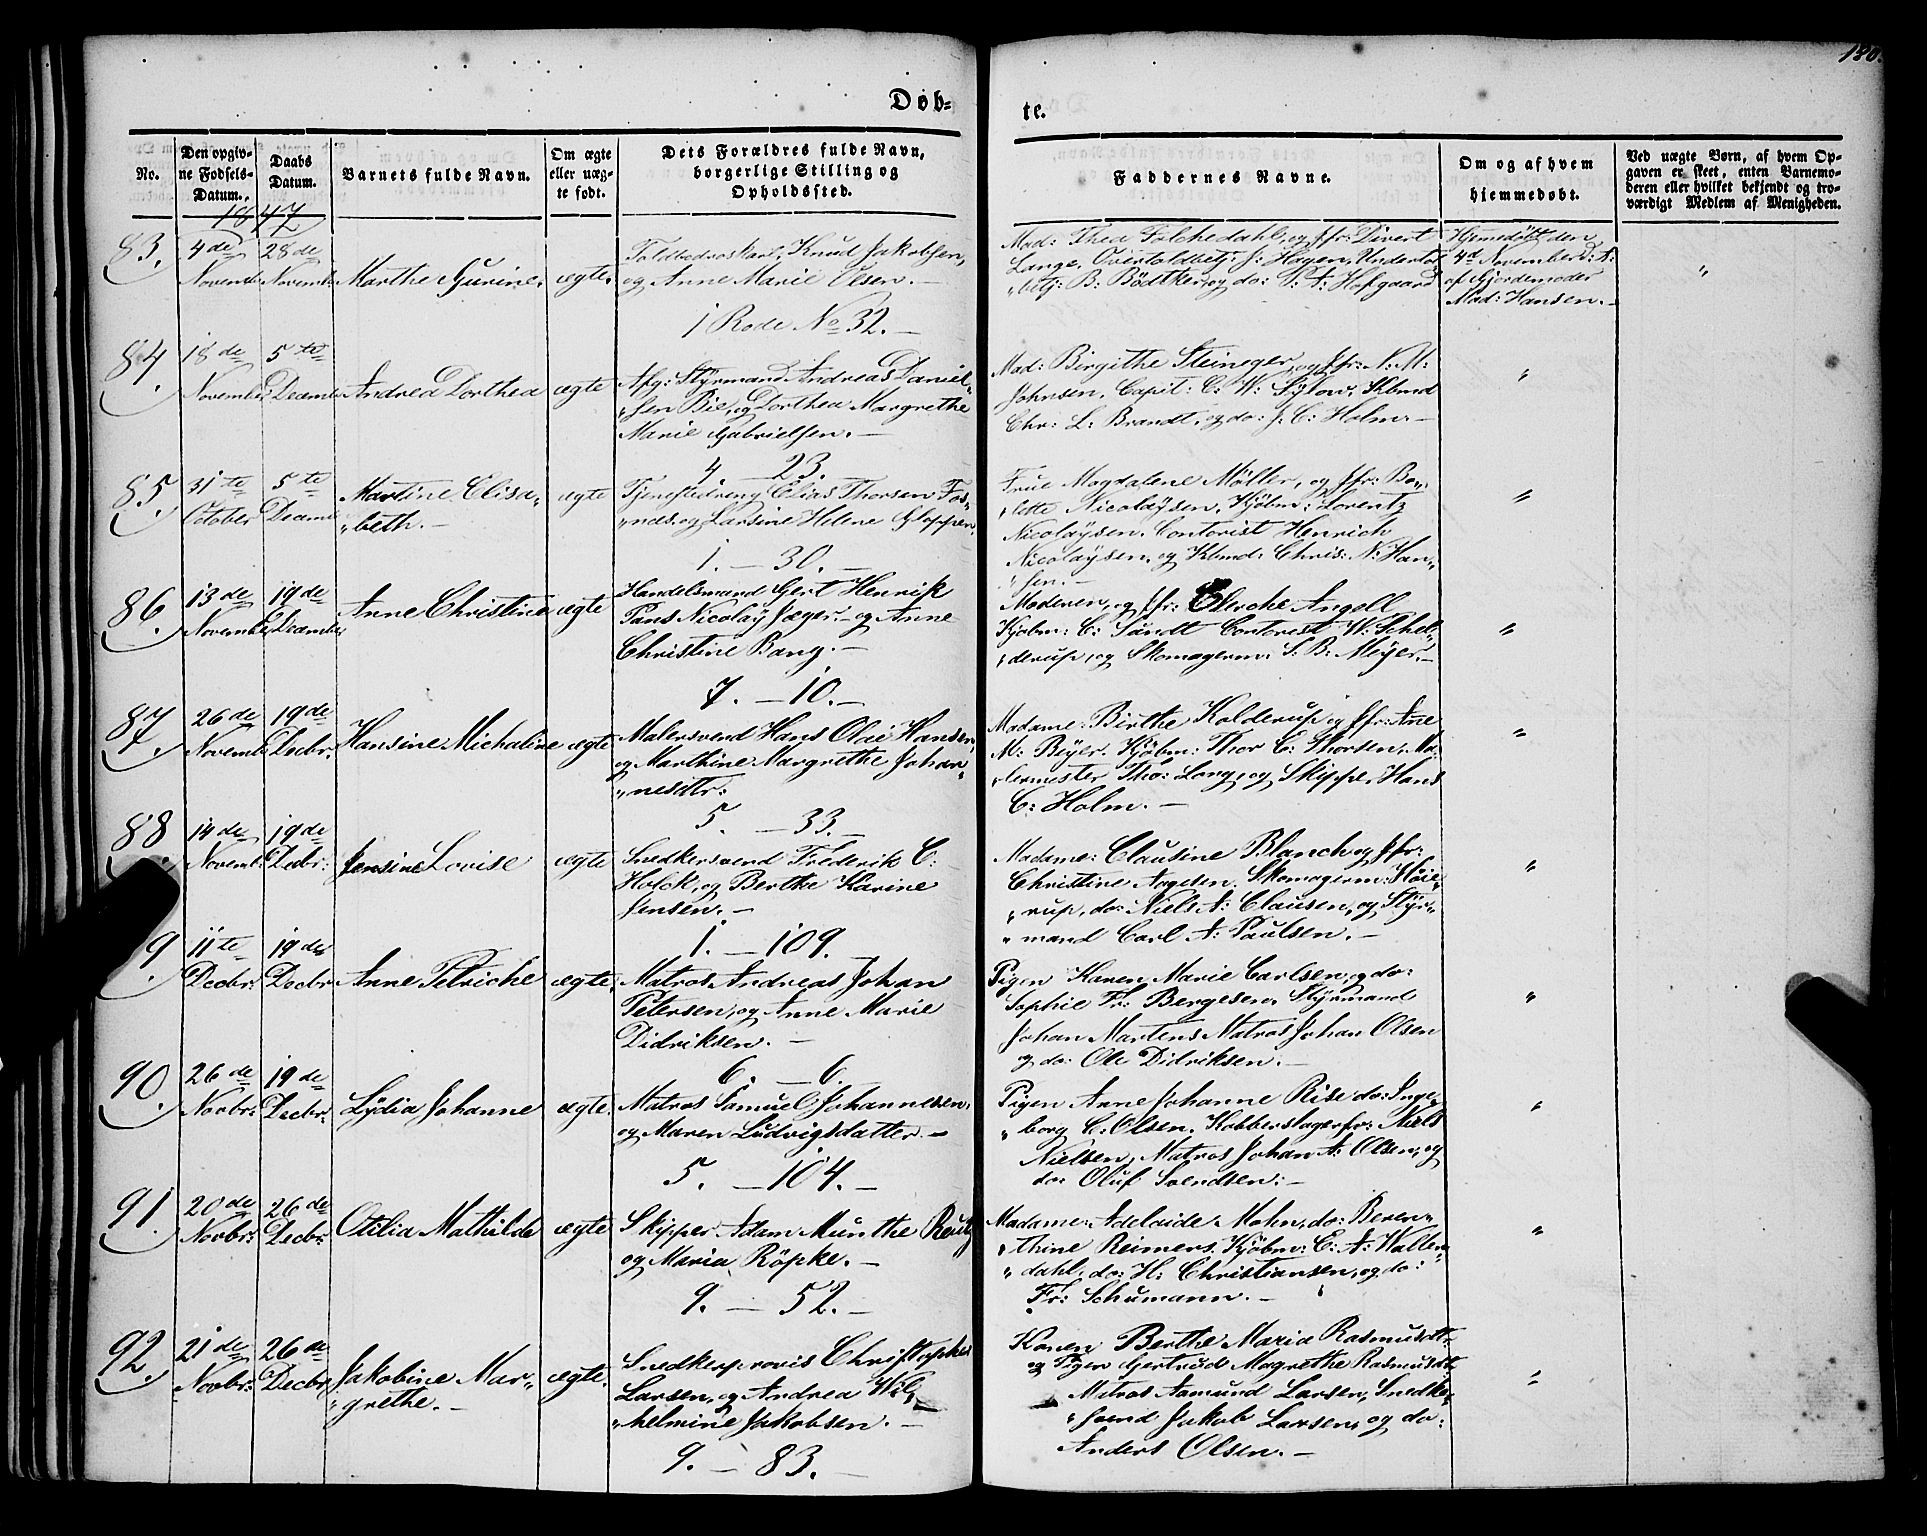 180.
Døb-
te.
No.
Den opgiv-
ne Fødsels-
Datum.
Daabs
Datum.
Barnets fulde Navn.
Om ægte
eller uæg-
te født.
Dets Forældres fulde Navn,
borgerlige Stilling og
Opholdssted.
Faddernes Navne.
Om og af hvem
hjemmedøbt.
Ved uægte Børn, af hvem Op-
gaven er skeet, enten Barnemo-
deren eller hvilket bekjendt og tro-
værdigt Medlem af Menigheden.
1847
83.
4de
Novemb:
28de
Novembr
Marthe Gurine.
ægte.
Knud Jakobsen,
og Anne Marie Olsen. —
1 Rode No 32. —
Mad: Thea Folchedahl, og Jfr: Divert
Lange, Overtoldbetj: J: Hagen, Undertol
„betj: B: Bödtker, og do: P: A: Hofgaard
Hjemedöbt den
4d November d: A:
af Gjordemoder
Mad: Hansen. —
"
84.
18de
November
5te
Decembe
Andrea Dorthea
ægte
Afg: Styrmand Andreas Daniel„
„sen Bie, og Dorthea Margrethe
Marie Gabrielsen. —
4 — 23.
Mad: Birgithe Steineger, og Jfr: N: M:
Johnsen, Capit: C: W: Sylow, Kbmd
Chr: L: Brandt, og do: J: C: Holm. —
"
85.
31te
October
5te
Decemb
Martine Elisa„
„beth. —
ægte
Tjenestedreng Elias Thorsen Fos„
„næs, og Larsine Helene Gloppen
1. — 30. —
Frue Magdalene Møller, og Jfr: Bo„
„lette Nicolaysen, Kjöbm: Lorentz
Nicolaysen, Contorist Henrich
Nicolaysen, og Kbmd: Chris: N: Han„
„sen. —
"
86.
13de
November
19de
December
Anne Christine
ægte
Handelsmand Gert Henrik
Pans Nicolay Jæger. — og Anne
Christine Bang. —
7. — 10. —
Moderen, og Jfr: Clerche Angell
Kjobm: C: Sundt Contorist W: Schel„
„derup, og Skomagerm: S: B: Meyer. —
"
87.
26de
Novembe
19de
Decbr.
Hansine Michaline
ægte
Malersvend Hans Olai Hansen,
og Marthine Margrethe Johan„
„nesdtr:
5. — 33. —
Madame: Birthe Kolderup, og Jfr: Ane
M: Beyer. Kjöbm: Thor C: Thorsen, Ma„
„lermester Tho: Lang, og Skipper Hans
C: Holm. —
"
88
14de
Novemb:
19de
Decbr:
Jensine Lovise
ægte
Snedkersvend Frederik C:
Holck, og Berthe Karine
Jensen. —
1. — 109. —
Madame: Clausine Blanch og Jfr:
Christine Aagesen. Skomagerm: Höie„
„rup, do: Niels A: Clausen, og Styr„
„mand Carl A: Paulsen. —
"
9.
11te
Decbr:
19de
Decbr
Anne Petriche
ægte.
Matros Andreas Johan
Petersen, og Anne Marie
Didriksen. —
6. — 6. —
Pigen Karen Marie Carlsen, og do:
Sophie Fr: Bergesen, Styrmand
Johan Martens Matros Johan Olsen
og do: Ole Didriksen. —
"
90.
26de
Novbr:
19de
Decbr.
Lydia Johanne
ægte.
Matros Samuel Johannesen,
og Maren Ludvigsdatter. —
5. — 104. —
Pigen Anne Johanne Rise do: Inge„
„borg C: Olsen, Kobberslagerfr: Niels
Nielsen, Matros Johan A: Olsen, og
do: Oluf Svendsen: —
"
91.
20de
Novbr:
26de
Decbr.
Otilia Mathilde
ægte
Skipper Adam Munthe Reutz
og Maria Röpke. —
9. — 52. —
Madame: Adelaide Mohn, do: Beren„
„thine Reimers. Kjöbm: C: A: Wallen„
„dahl, do: H: Christiansen, og do:
Fr: Schumann. —
"
92.
21de
Novbr:
26de
Decbr,
Jakobine Mar„
„grethe. —
ægte.
Snedkerprovis Christopher
Larsen, og Andrea Wil„
„helmine Jakobsen. —
9. — 83. —
Konen Berthe Maria Rasmusdtr
og Pigen Gertrud Magrethe Rasmusdt,
Matros Aamund Larsen, Snedke„
„svend Jakob Larsen, og do:
Anders Olsen. —
"